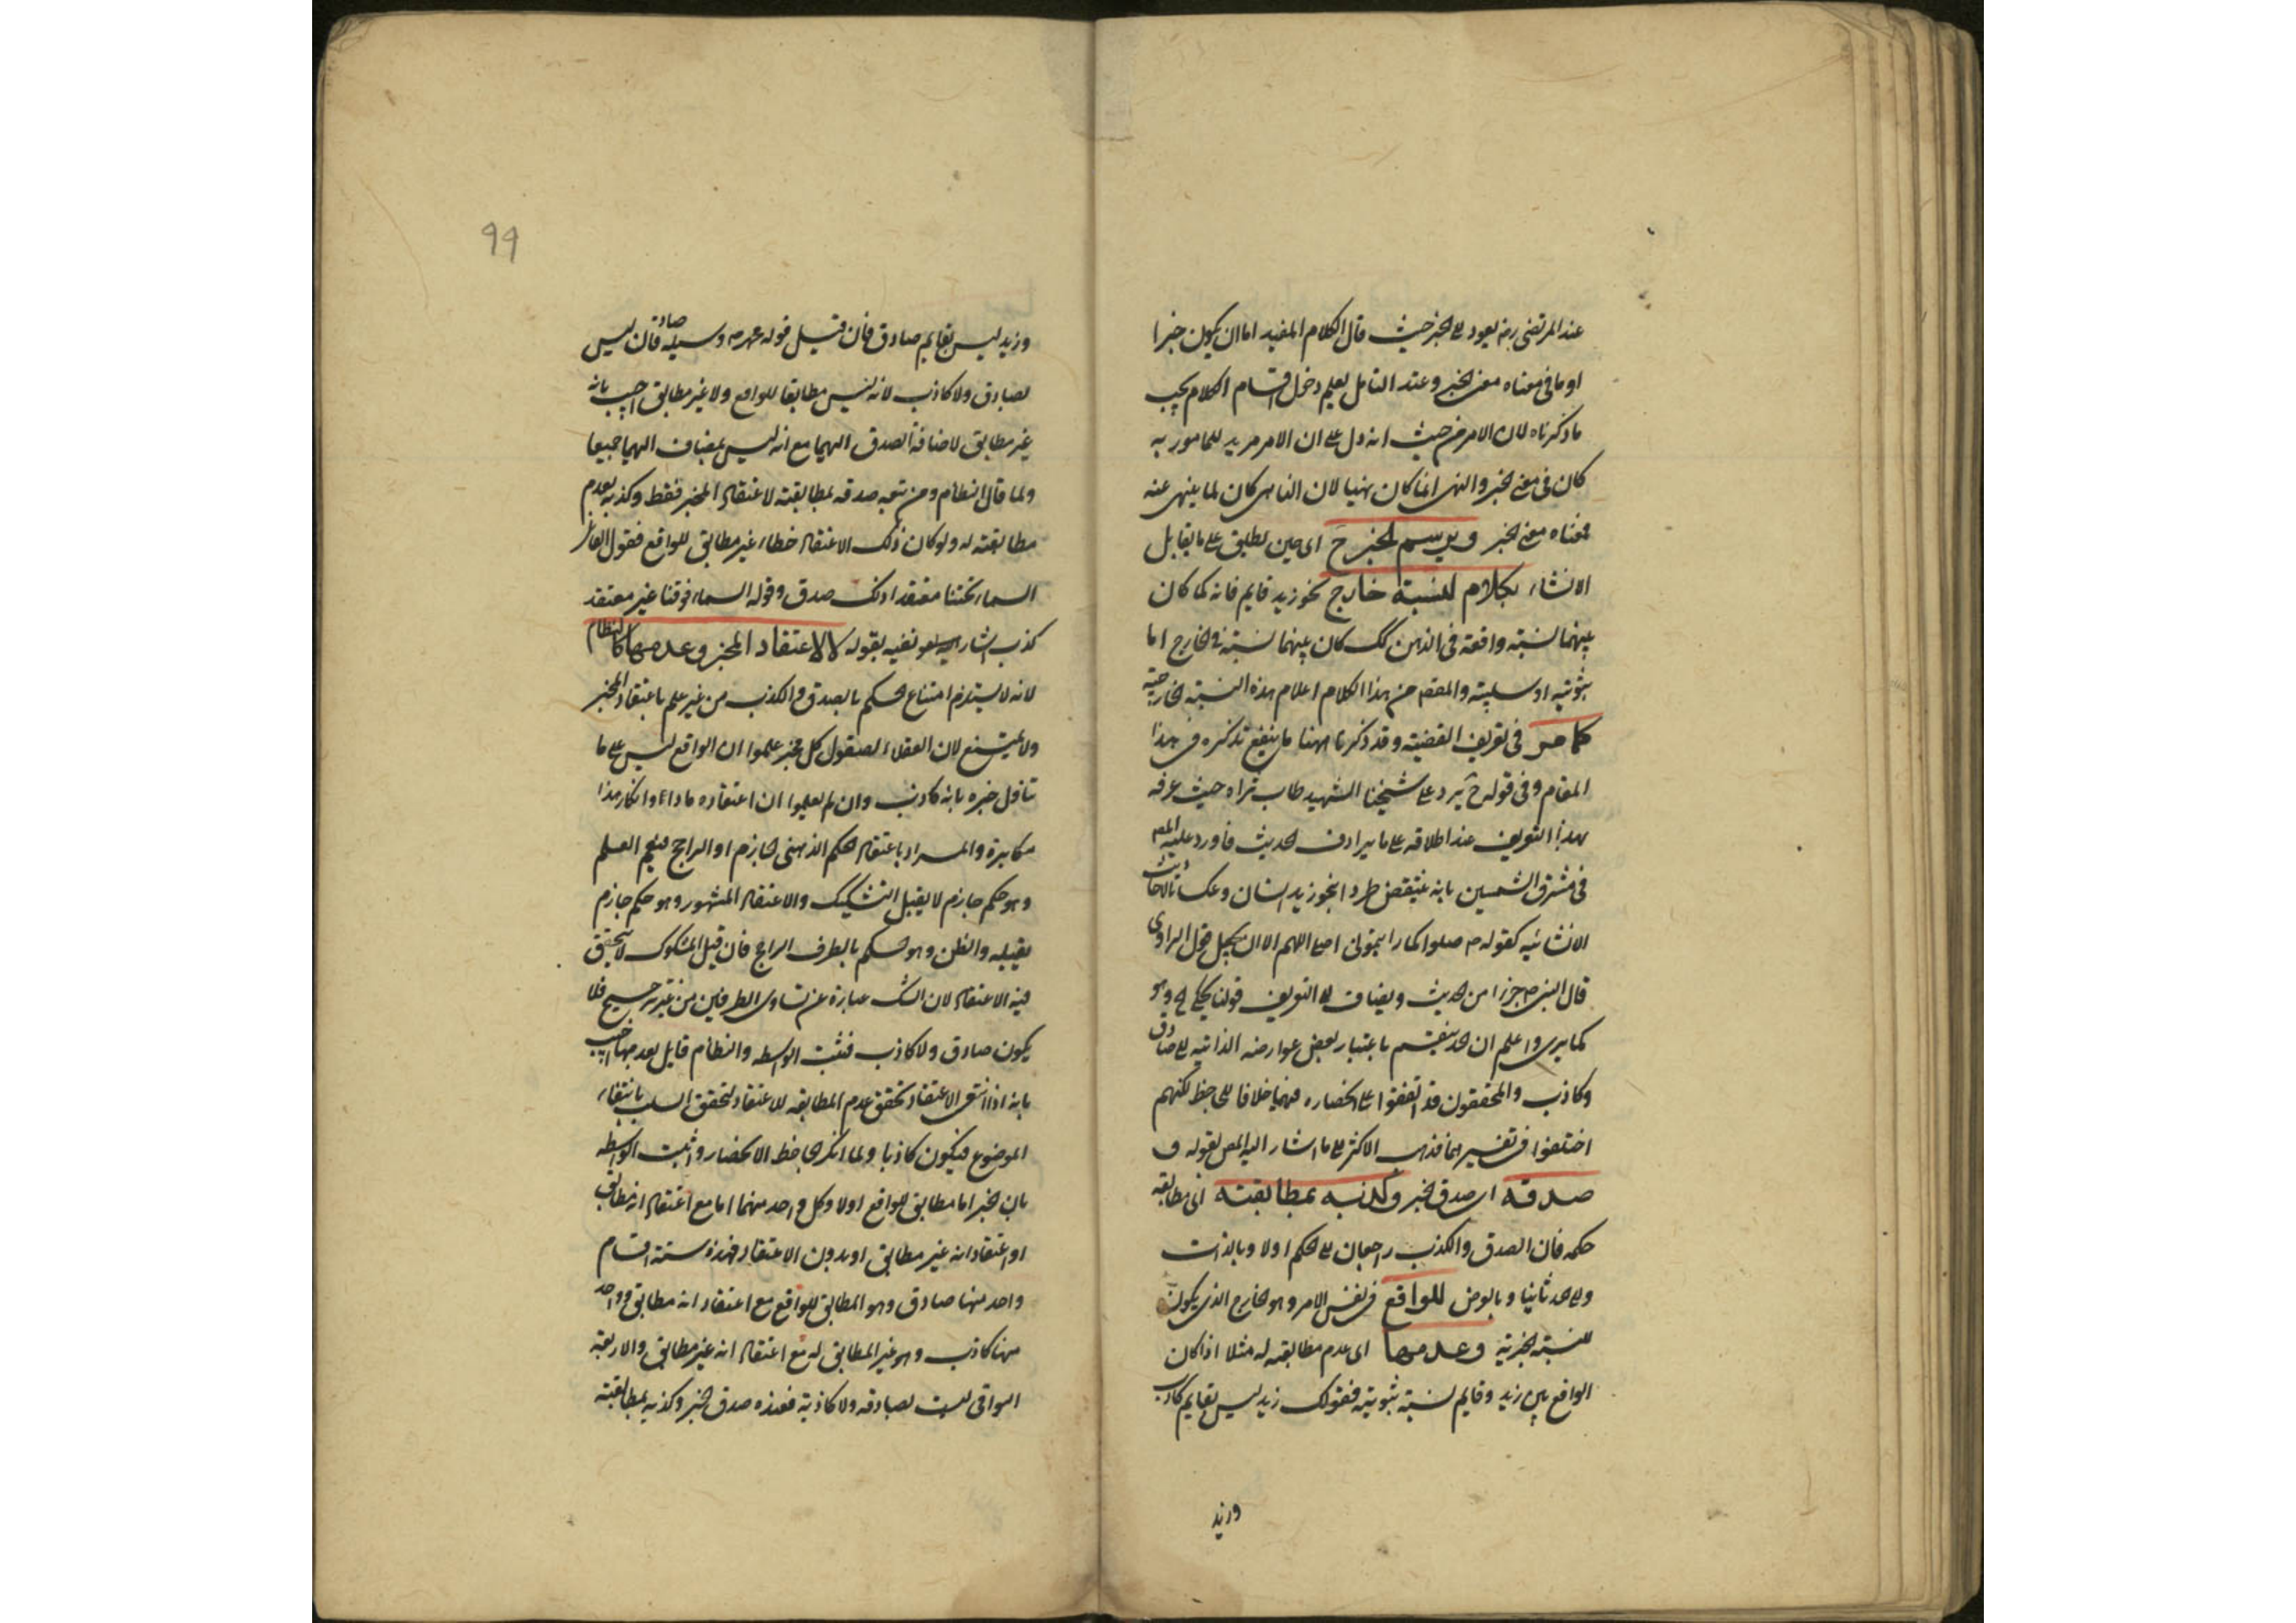 عند المرتضى رض يعود الى الخبر حيث قال الكلام المفيد اما ان يكون خبرا
او ما فى معناه معنى الخبر وعند التامل يعلم دخول اقسام الكلام يجب
ما ذكرناه لان الامر من حيث انه دل على ان الامر مريد للمامور به
كان فى معنى الخبر والنهى انما كان نهيا لان الناهى كان لما ينهى عنه
معناه معنى الخبر ويرسم الخبر ح اى حين يطلق على ما يقابل
الانشاء بكلام لنسبته خارج نحو زيد قايم فانه كما كان
بينهما نسبة واقعة فى الذهن كك كان بينهما نسبة فى الخارج اما
ثبوتية او سلبية والمقصـ من هذا الكلام اعلام هذه النسبة الخارجية
كما مر فى تعريف القضية وقد ذكرنا ههنا ما ينفع تذكره فى هذا
المقام وفى قوله ح يرد على شيخنا الشهيد طاب ثراه حيث عرفه
بهذا التعريف عند اطلاقه على ما يرادف الحديث فاورد عليه المصـ
فى مشرق الشمسين بانه ينتقض طردا بنحو زيد انسان وعكسا بالاحاديث
الانشائيه كقوله ص صلوا كما رايتمونى اصلى اللهم الا ان يجعل قول الراوى
قال النبى ص جزءا من الحديث ويضاف الى التعريف قولنا يحكى الخ وهو
كما يرى واعلم ان الخبر ينقسم باعتبار بعض عوارضه الذاتيه الى صادق
وكاذب والمحققون قد اتفقوا على انحصاره فيهما خلافا للجاحظ لكنهم
اختلفوا فى تفسيرهما فذهب الاكثر الى ما اشار اليه المص بقوله و
صدقه اى صدق الخبر وكذبه بمطابقته اى مطابقة
حكمه فان الصدق والكذب راجعان الى الحكم اولا وبالذات
والى الخبر ثانيا وبالعرض للواقع فى نفس الامر وهو الخارج الذى يكون
لنسبته الخبرية وعدمها اى عدم مطابقته له مثلا اذا كان
الواقع بين زيد وقايم نسبة ثبوتية فقولك زيد ليس بقايم كاذب
وزيد
99
وزيد ليس بقايم صادق فان قيل قوله وسيلمه صادقان ليس
بصادق ولا كاذب لانه ليس مطابقا للواقع ولا غير مطابق اجيب بانه
غير مطابق لاضافة الصدق اليهما مع انه ليس بمضاف اليهما جميعا
ولما قال النظام ومن تبعه صدقه بمطابقته لاعتقاد المخبر فقط وكذبه بعدم
مطابقته له ولو كان ذلك الاعتقاد خطاء غير مطابق للواقع فقول القائل
السماء تحتنا معتقدا ذلك صدق وقوله السماء فوقنا غير معتقد
كذب اشار الى نفيه بقوله لا لاعتقاد المخبر وعدمها كالنظام
لانه لا يستلزم امتناع الحكم بالصدق والكذب من غير علم باعتقاد المخبر
ولا يمتنع لان العقلاء لصقول كل مخبر علموا ان الواقع ليس على ما
تناول خبره بانه كاذب وان لم يعلموا ان اعتقاده ماذا وانكار هذا
مكابرة والمراد باعتقاد الحكم الذهنى الجازم او الراجح فيعم العلم
وهو حكم جازم لا يقبل التشكيك والاعتقاد المشهور وهو حكم جازم
يقبله والظن وهو الحكم بالطرف الراجح فان قيل المشكوك لا يتحقق
فيه الاعتقاد لان الشك عبارة عن تساوى الطرفين من غير ترجيح فلا
يكون صادق ولا كاذب فثبت الواسطه والنظام قايل بعدمها اجيب
بانه اذا انتفى الاعتقاد تحقق عدم المطابقه للاعتقاد لتحقق السلب بانتفاء
الموضوع فيكون كاذبا ولما انكر الجاحظ الانحصار واثبت الواسطه
بان الخبر اما مطابق للواقع اولا وكل واحد منهما اما مع اعتقاد انه مطابق
او اعتقاد انه غير مطابق او بدون الاعتقاد فهذه ستة اقسام
واحد منها صادق وهو المطابق للواقع مع اعتقاد انه مطابق وواحد
منها كاذب وهو غير المطابق له مع اعتقاد انه غير مطابق والاربعة
البواقى ليست بصادقه ولا كاذبة فعنده صدق الخبر وكذبه بمطابقته